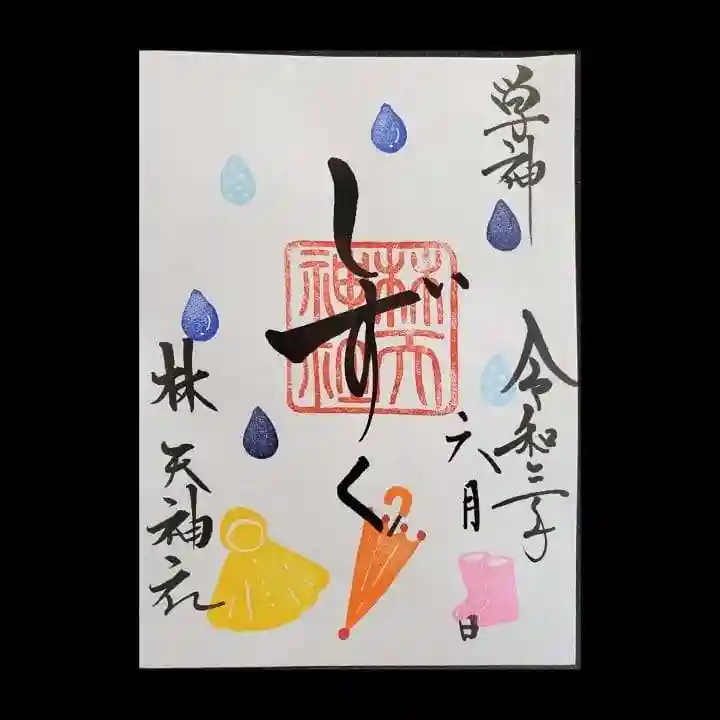 学神
令和三年
六月 日
しずく
林天神社
林天神社